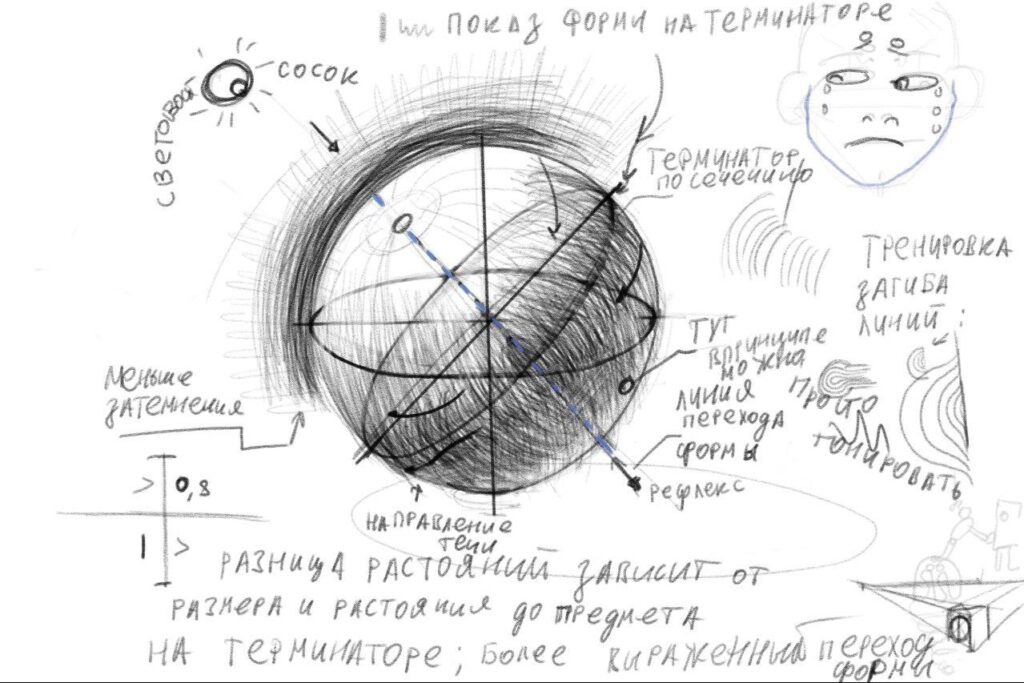 ПОКАЗ ФОРМЫ НА ТЕРМИНАТОРЕ
СВЕТОВОЙ
СОСОК
ТЕРМИНАТОР
ПО СЕЧЕНИЮ
ТРЕНИРОВКА
ЗАГИБА
ЛИНИЙ:
ТУТ
ВПРИНЦИПЕ
МОЖНА
ПРОСТО
ТОНИРОВАТЬ
ЛИНИЯ
ПЕРЕХОДА
ФОРМЫ
РЕФЛЕКС
МЕНЬШЕ
ЗАТЕМНЕНИЯ
0,8
1
НАПРАВЛЕНИЕ
ТЕНИ
РАЗНИЦА РАСТОЯНИЙ ЗАВИСИТ ОТ
РАЗМЕРА И РАСТОЯНИЯ ДО ПРЕДМЕТА
НА ТЕРМИНАТОРЕ; БОЛЕЕ ВЫРАЖЕННЫЙ ПЕРЕХОД
ФОРМЫ